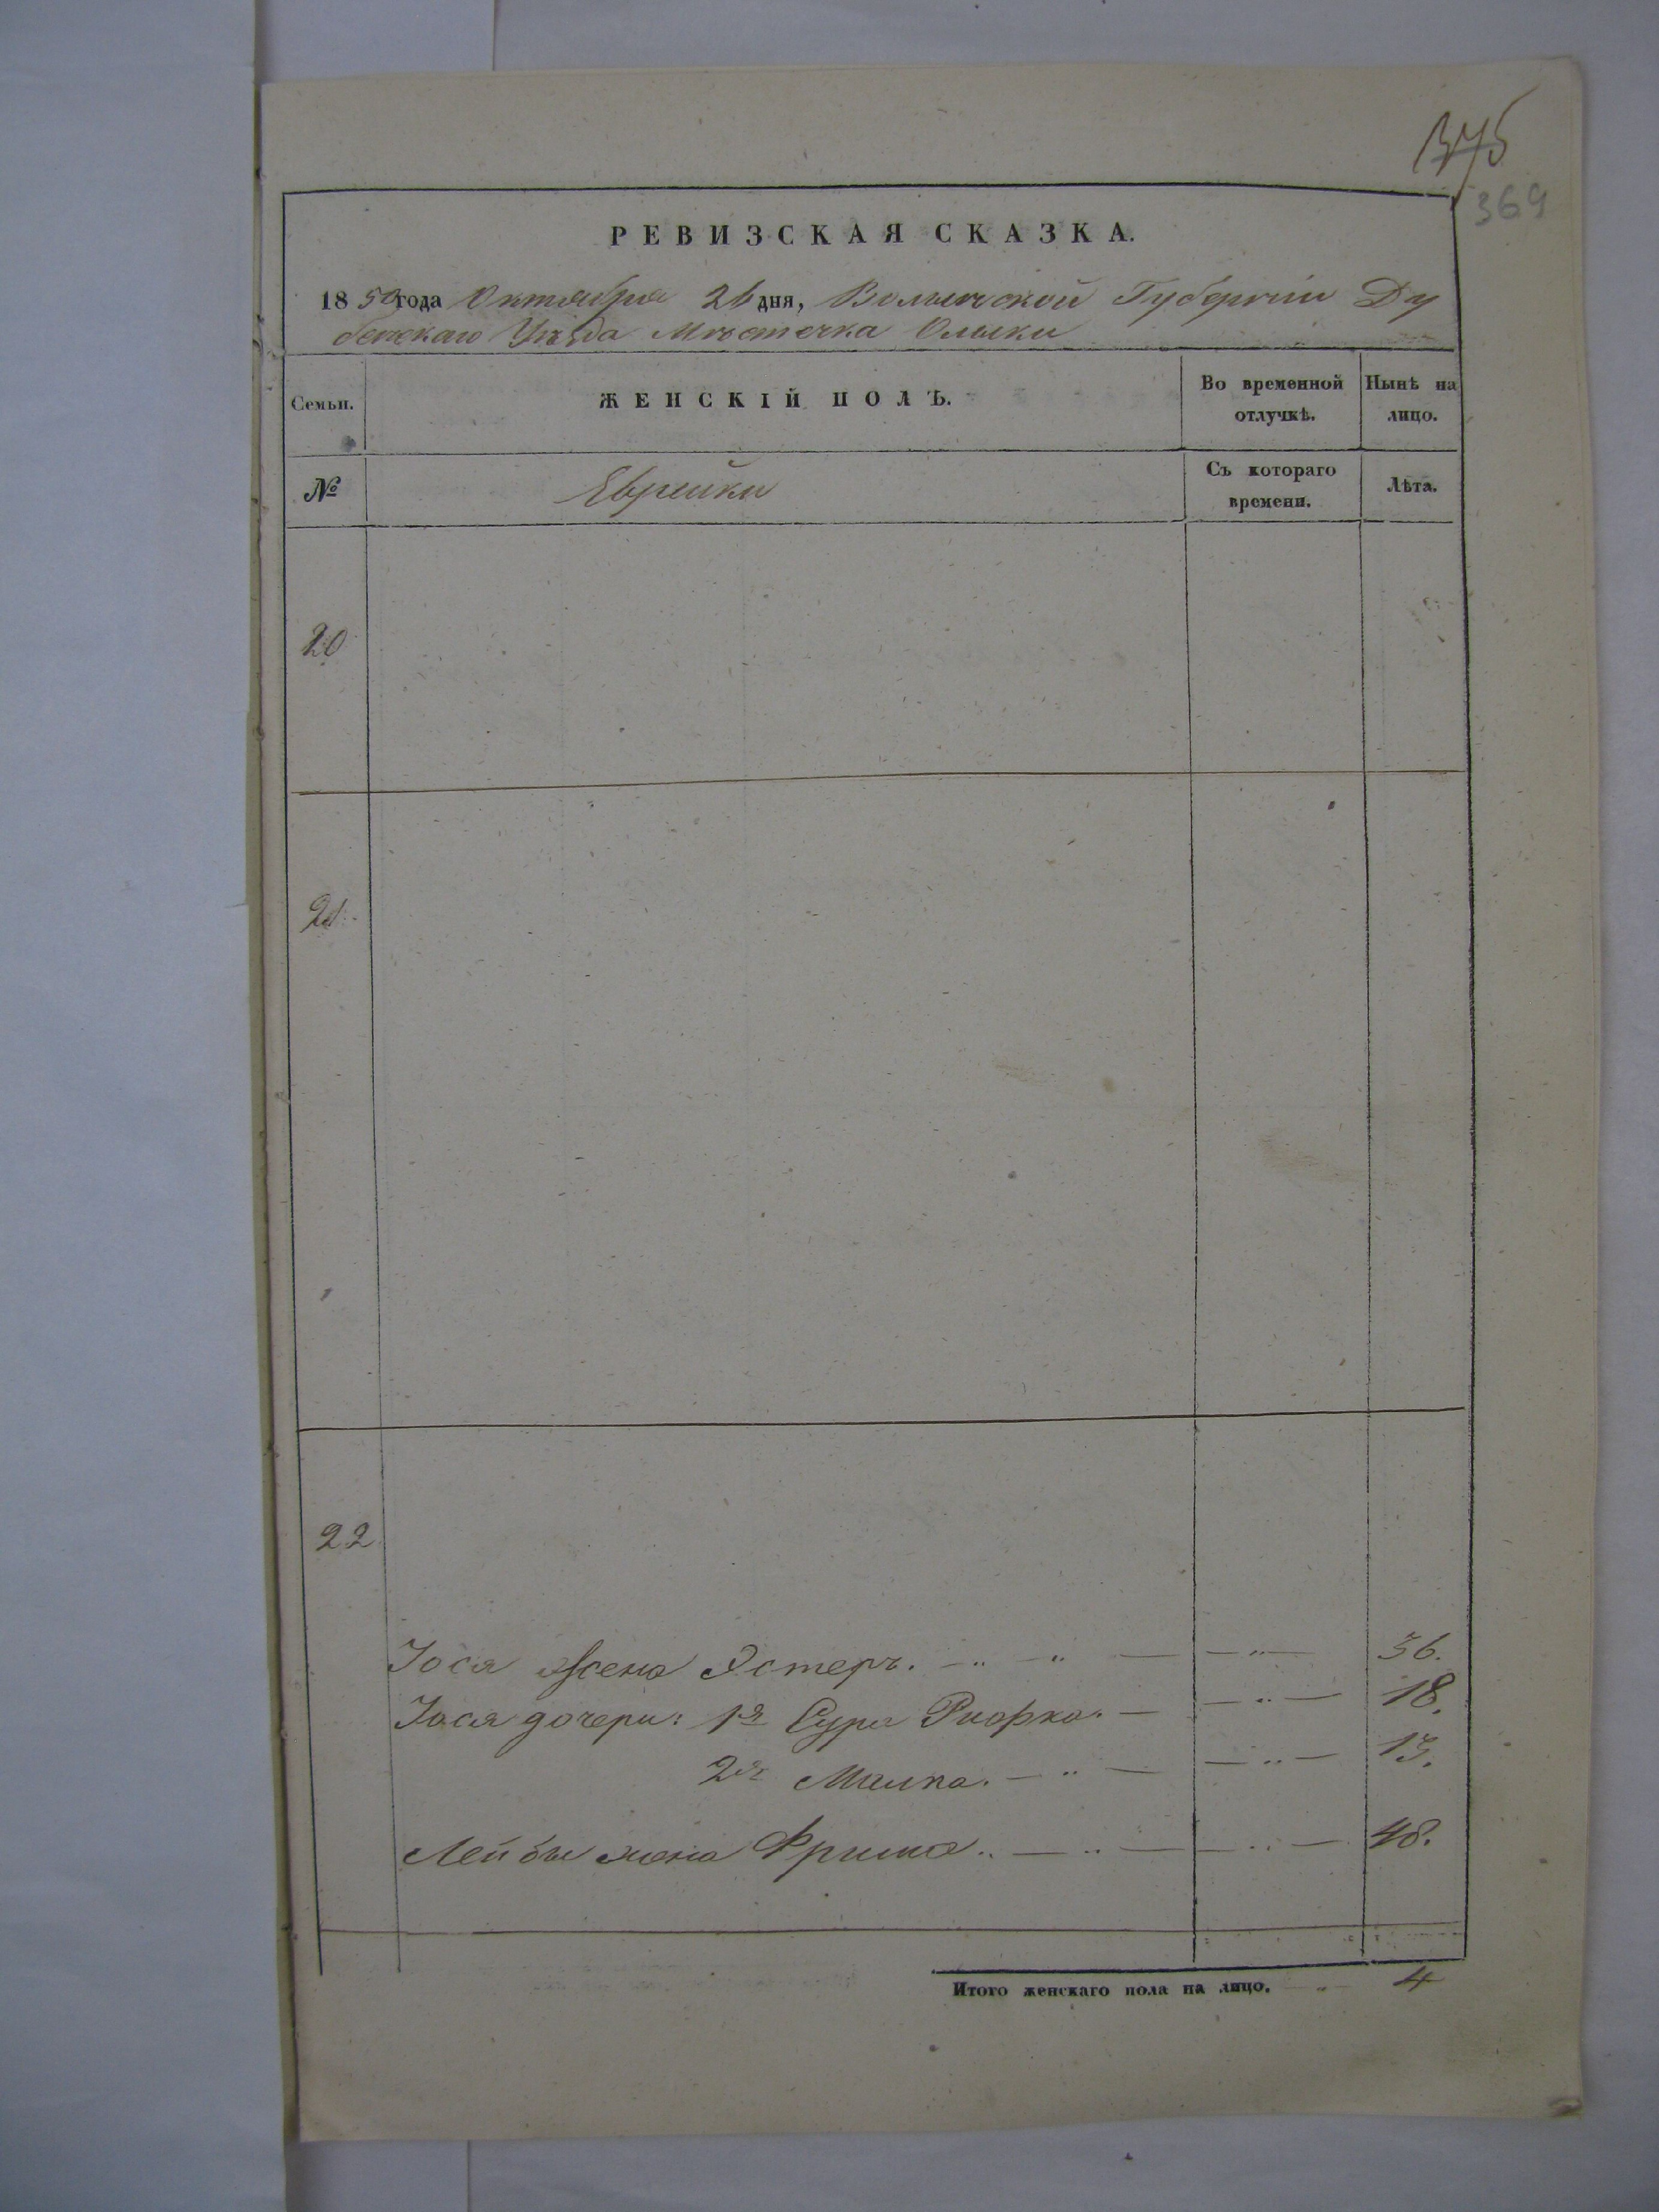 375
369
РЕВИЗСКАЯ СКАЗКА.
1850 года Октября 26 дня, Волынской Губернiи Ду
бенскаго Уѣзда Мѣстечка Олыки
Семьи. ЖЕНСКІЙ ПОЛЪ. Во временной отлучкѣ. Нынѣ на лицо.
№ Еврейки Съ котораго времени. Лѣта.
20
21.
22
Іося жена Эстеръ. — „ „ — — „ — 56.
Іося дочери: 1я Сура Рифка. — — „ — 18.
2я Малка. — „ — — „ — 13.
Лейбы жена Фрима. — „ — — „ — 48.
Итого женскаго пола на лицо. — „ — 4